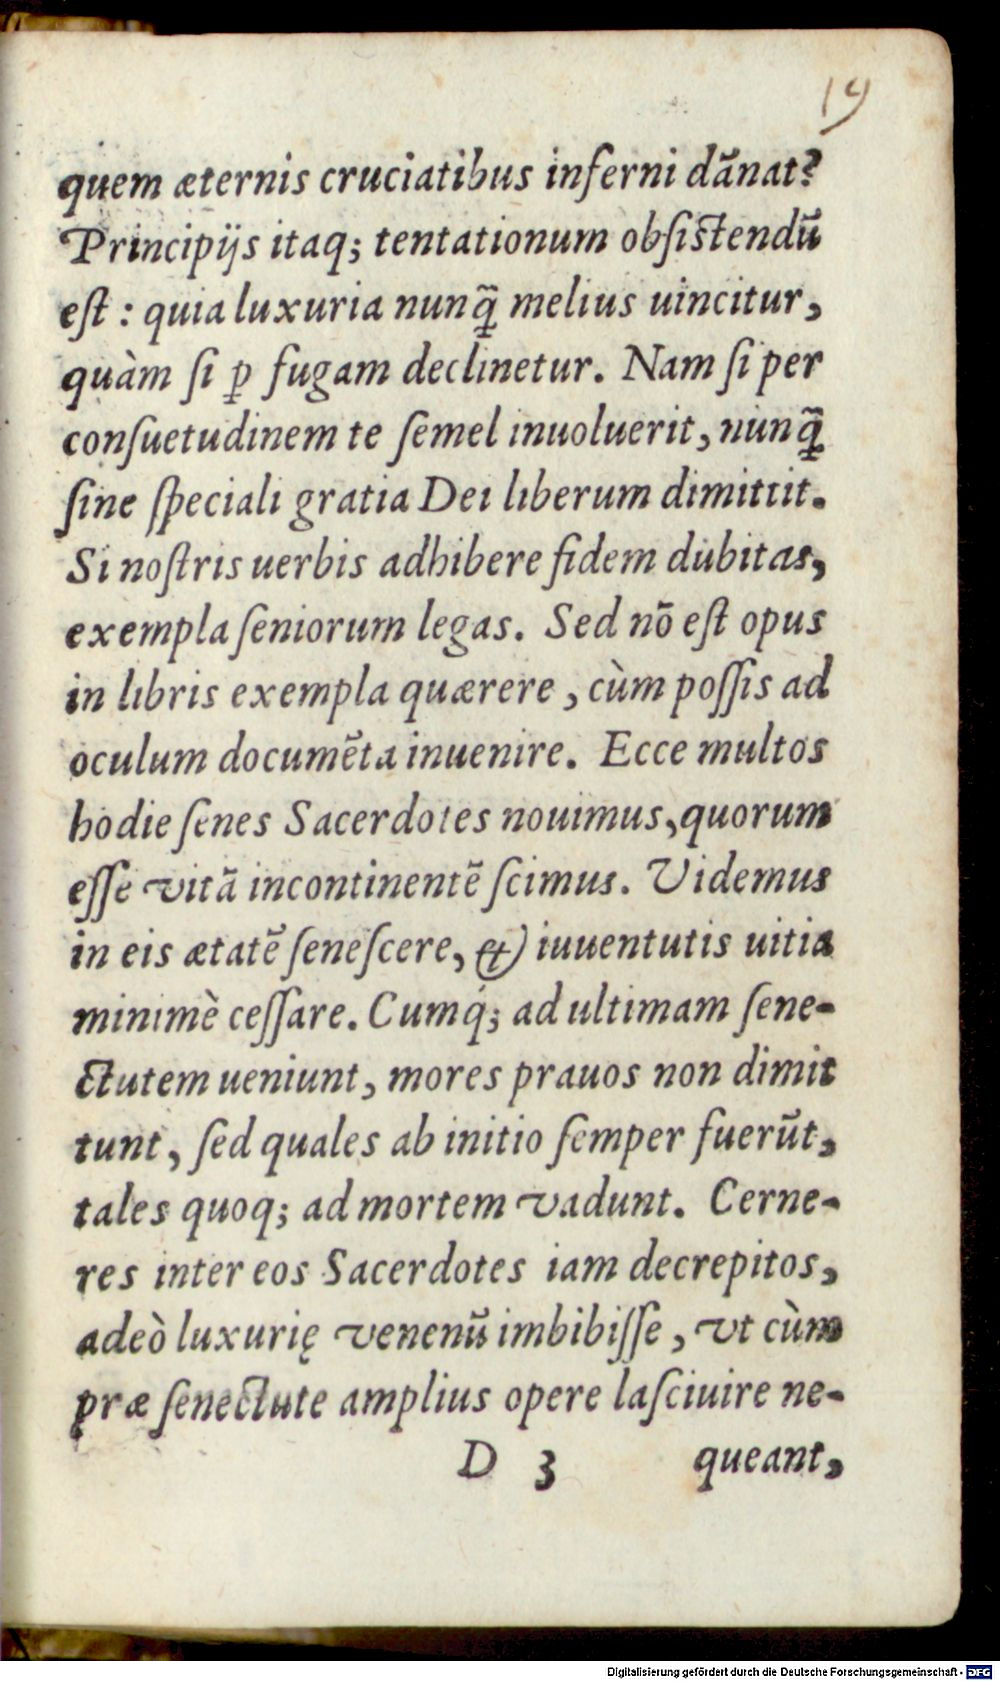 19
quem æternis cruciatibus inferni dãnat?
Principijs itaq; tentationum obſiſtendũ
eſt : quia luxuria nunq̃ melius uincitur,
quàm ſi ꝑ fugam declinetur. Nam ſi per
conſuetudinem te ſemel inuoluerit, nunq̃
ſine ſpeciali gratia Dei liberum dimittit.
Si noſtris uerbis adhibere fidem dubitas,
exempla ſeniorum legas. Sed nõ eſt opus
in libris exempla quærere, cùm poſſis ad
oculum documẽta inuenire. Ecce multos
hodie ſenes Sacerdotes nouimus, quorum
eſſe vitã incontinentẽ ſcimus. Videmus
in eis ætatẽ ſeneſcere, & iuuentutis uitia
minimè ceſſare. Cumq́; ad ultimam ſene-
ctutem ueniunt, mores prauos non dimit
tunt, ſed quales ab initio ſemper fuerũt,
tales quoq; ad mortem vadunt. Cerne-
res inter eos Sacerdotes iam decrepitos,
adeò luxurię venenũ imbibiſſe, vt cùm
præ ſenectute amplius opere laſciuire ne-
D 3 queant,
Digitalisierung gefördert durch die Deutsche Forschungsgemeinschaft - DFG